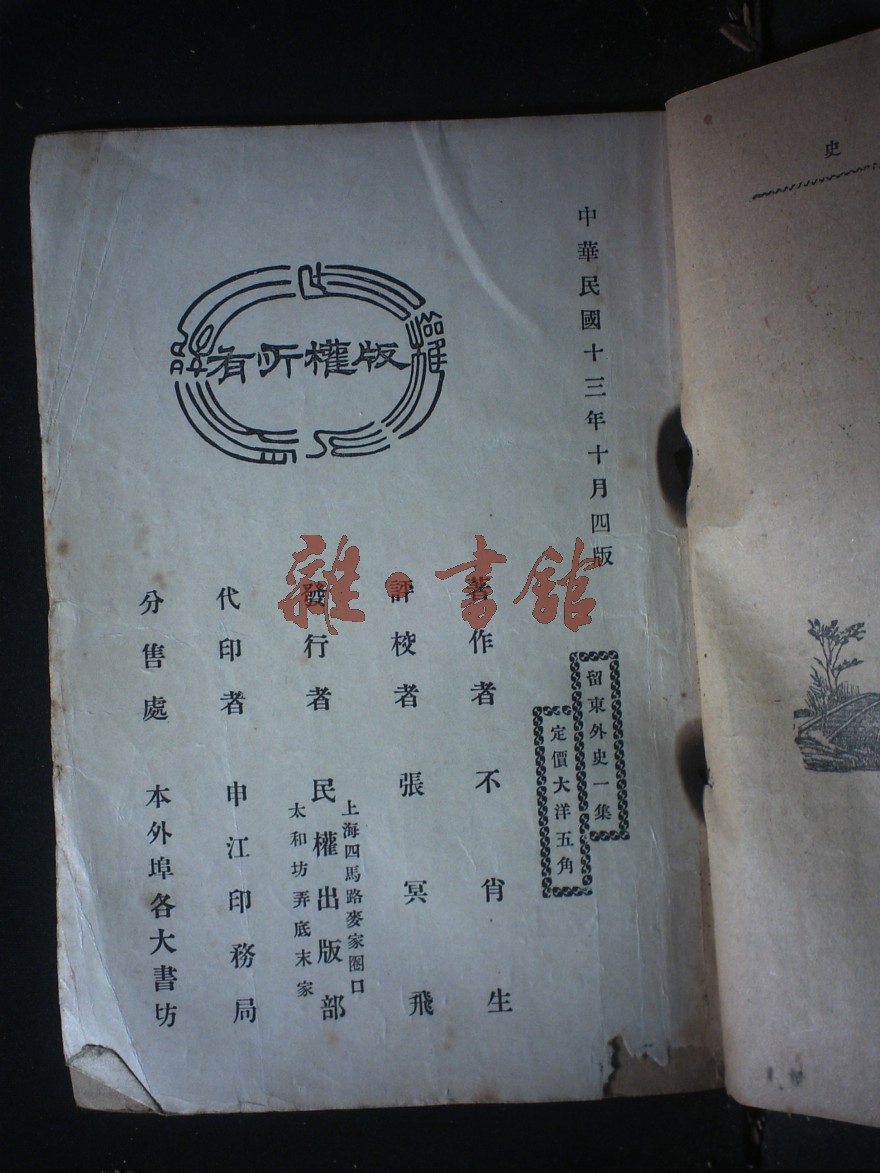 史
中華民國十三年十月四版
留東外史一集
定價大洋五角
著作者 不肖生
評校者 張冥飛
發行者 民權出版部
上海四馬路麥家圈口
太和坊弄底末家
代印者 申江印務局
分售處 本外埠各大書坊
版權所有
雜·書舘